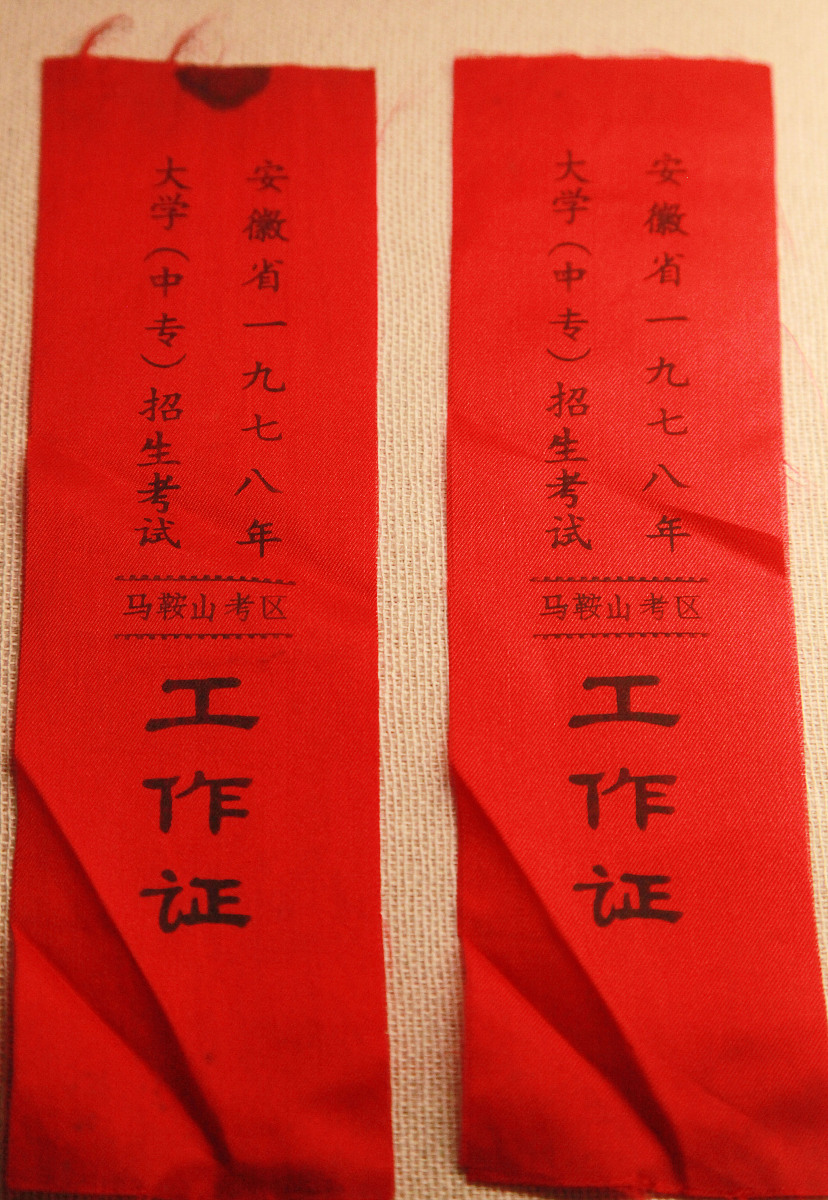 安徽省一九七八年
大学（中专）招生考试
马鞍山考区
工作证
安徽省一九七八年
大学（中专）招生考试
马鞍山考区
工作证